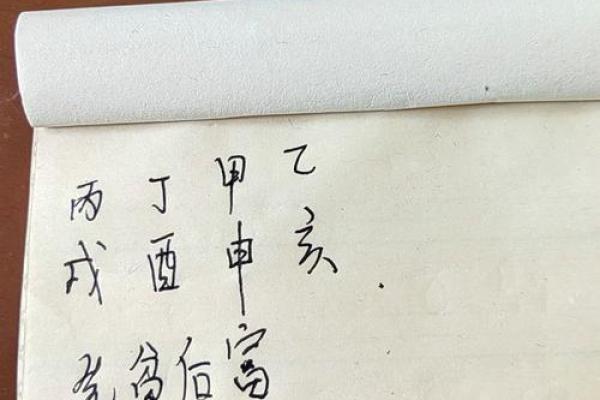 丙 丁 甲 乙
戌 酉 申 亥
先贫后富